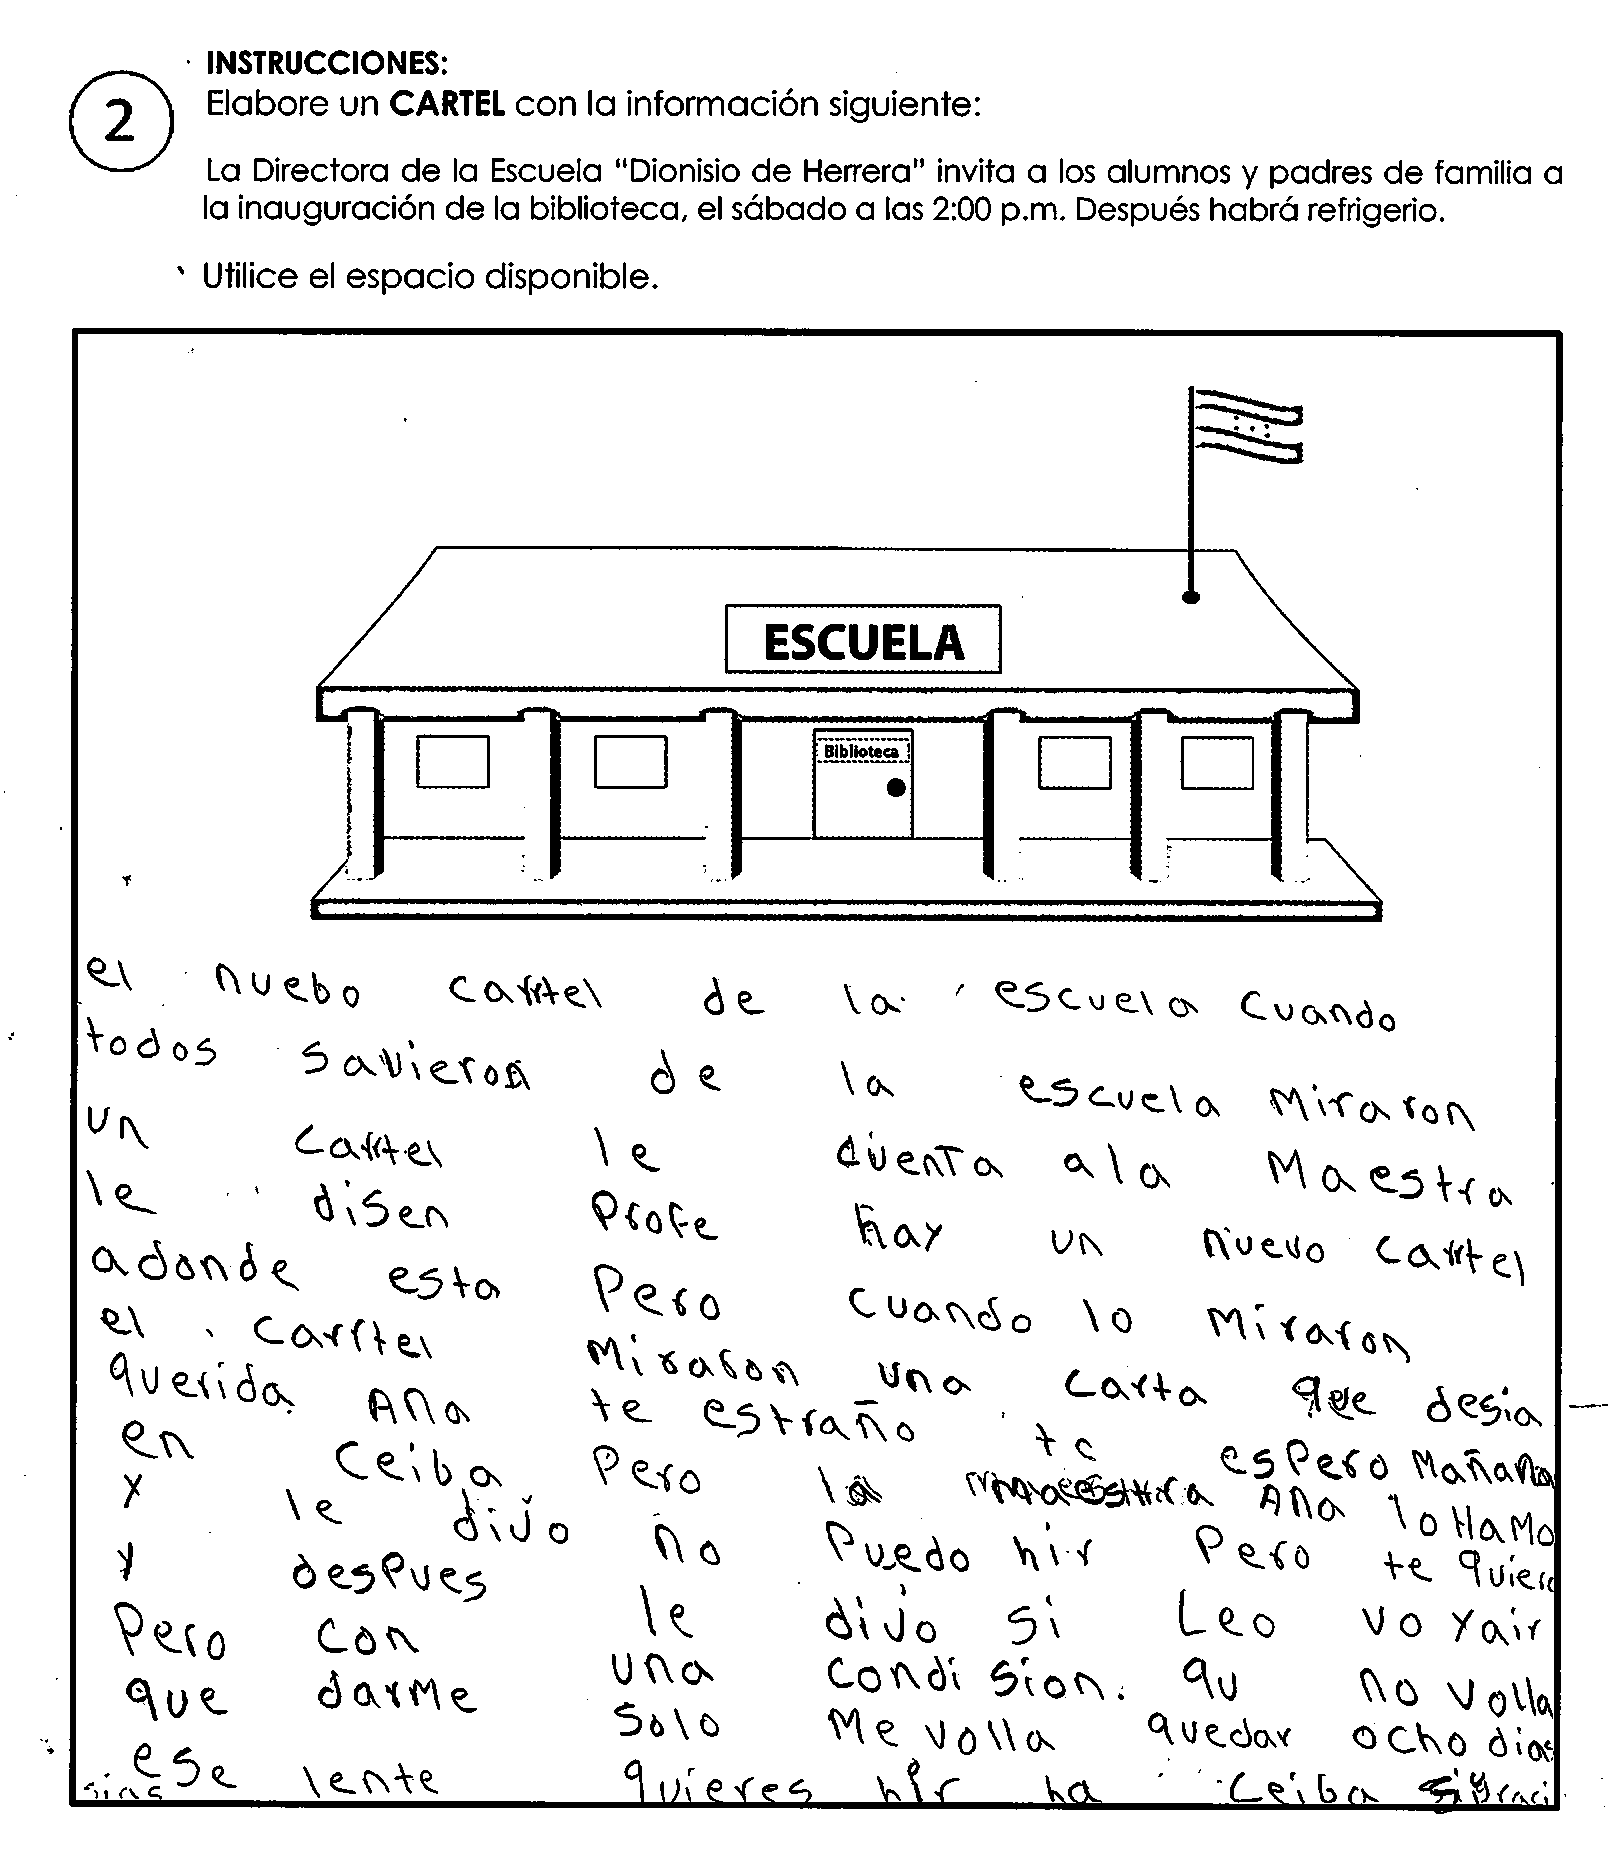 INSTRUCCIONES:
2
Elabore un CARTEL con la información siguiente:
La Directora de la Escuela "Dionisio de Herrera" invita a los alumnos y padres de familia a
la inauguración de la biblioteca, el sábado a las 2:00 p.m. Después habrá refrigerio.
Utilice el espacio disponible.
ESCUELA
Biblioteca
el nuebo carrtel de la escuela cuando
todos savieron de la escuela Miraron
un carrtel le cuenta ala Maestra
le disen Profe hay un nuevo carrtel
adonde esta Pero cuando lo Miraron
el carrtel Miraron una carta que desia
querida Ana te estraño te espero Mañana
en Ceiba Pero la maestra Ana lo HaMo
y le dijo no Puedo hir Pero te quiero
y despues le dijo si Leo vo yair
Pero con una condision. qu no volla
que darMe solo Me volla quedar ocho dias
ese lente quieres hir ha Ceiba si graci
sias